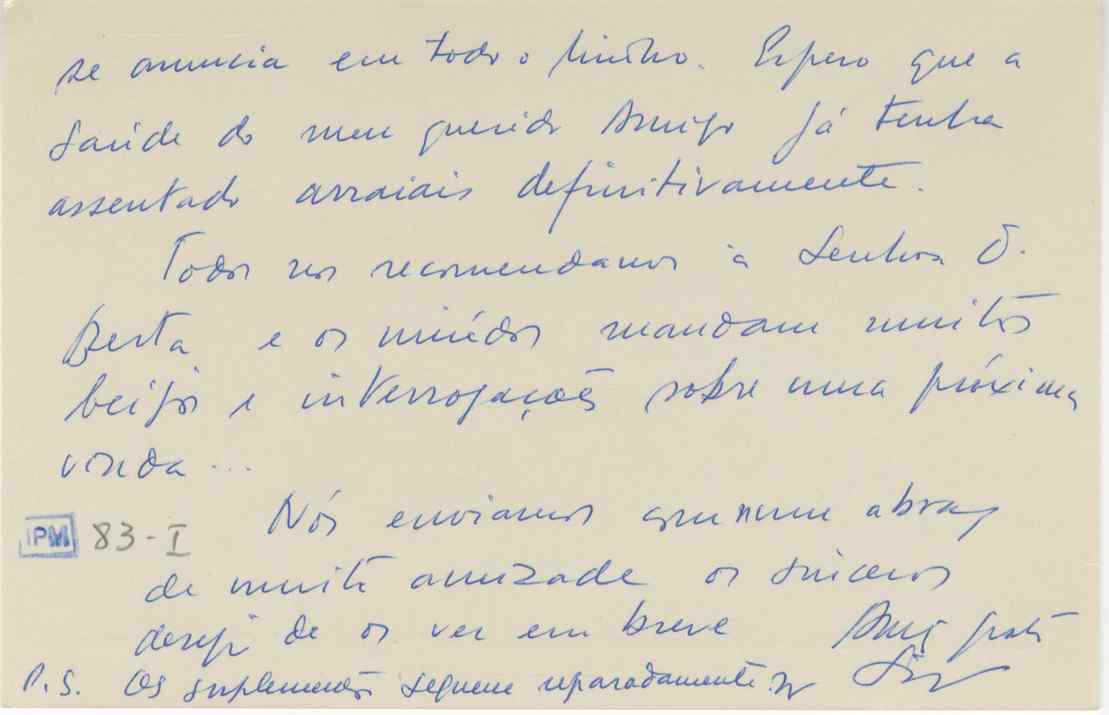 se anuncia em todo o Minho. Espero que a
saúde do meu querido Amigo já tenha
assentado arraiais definitivamente.
Todos nos recomendamos à Senhora D.
Berta e os miúdos mandam muitos
beijos e interrogações sobre uma próxima
vinda...
Nós enviamos com um abraço
PM 83-I
de muita amizade os sinceros
desejos de os ver em breve
Amigo grato
P.S. Os suplementos seguem separadamente.